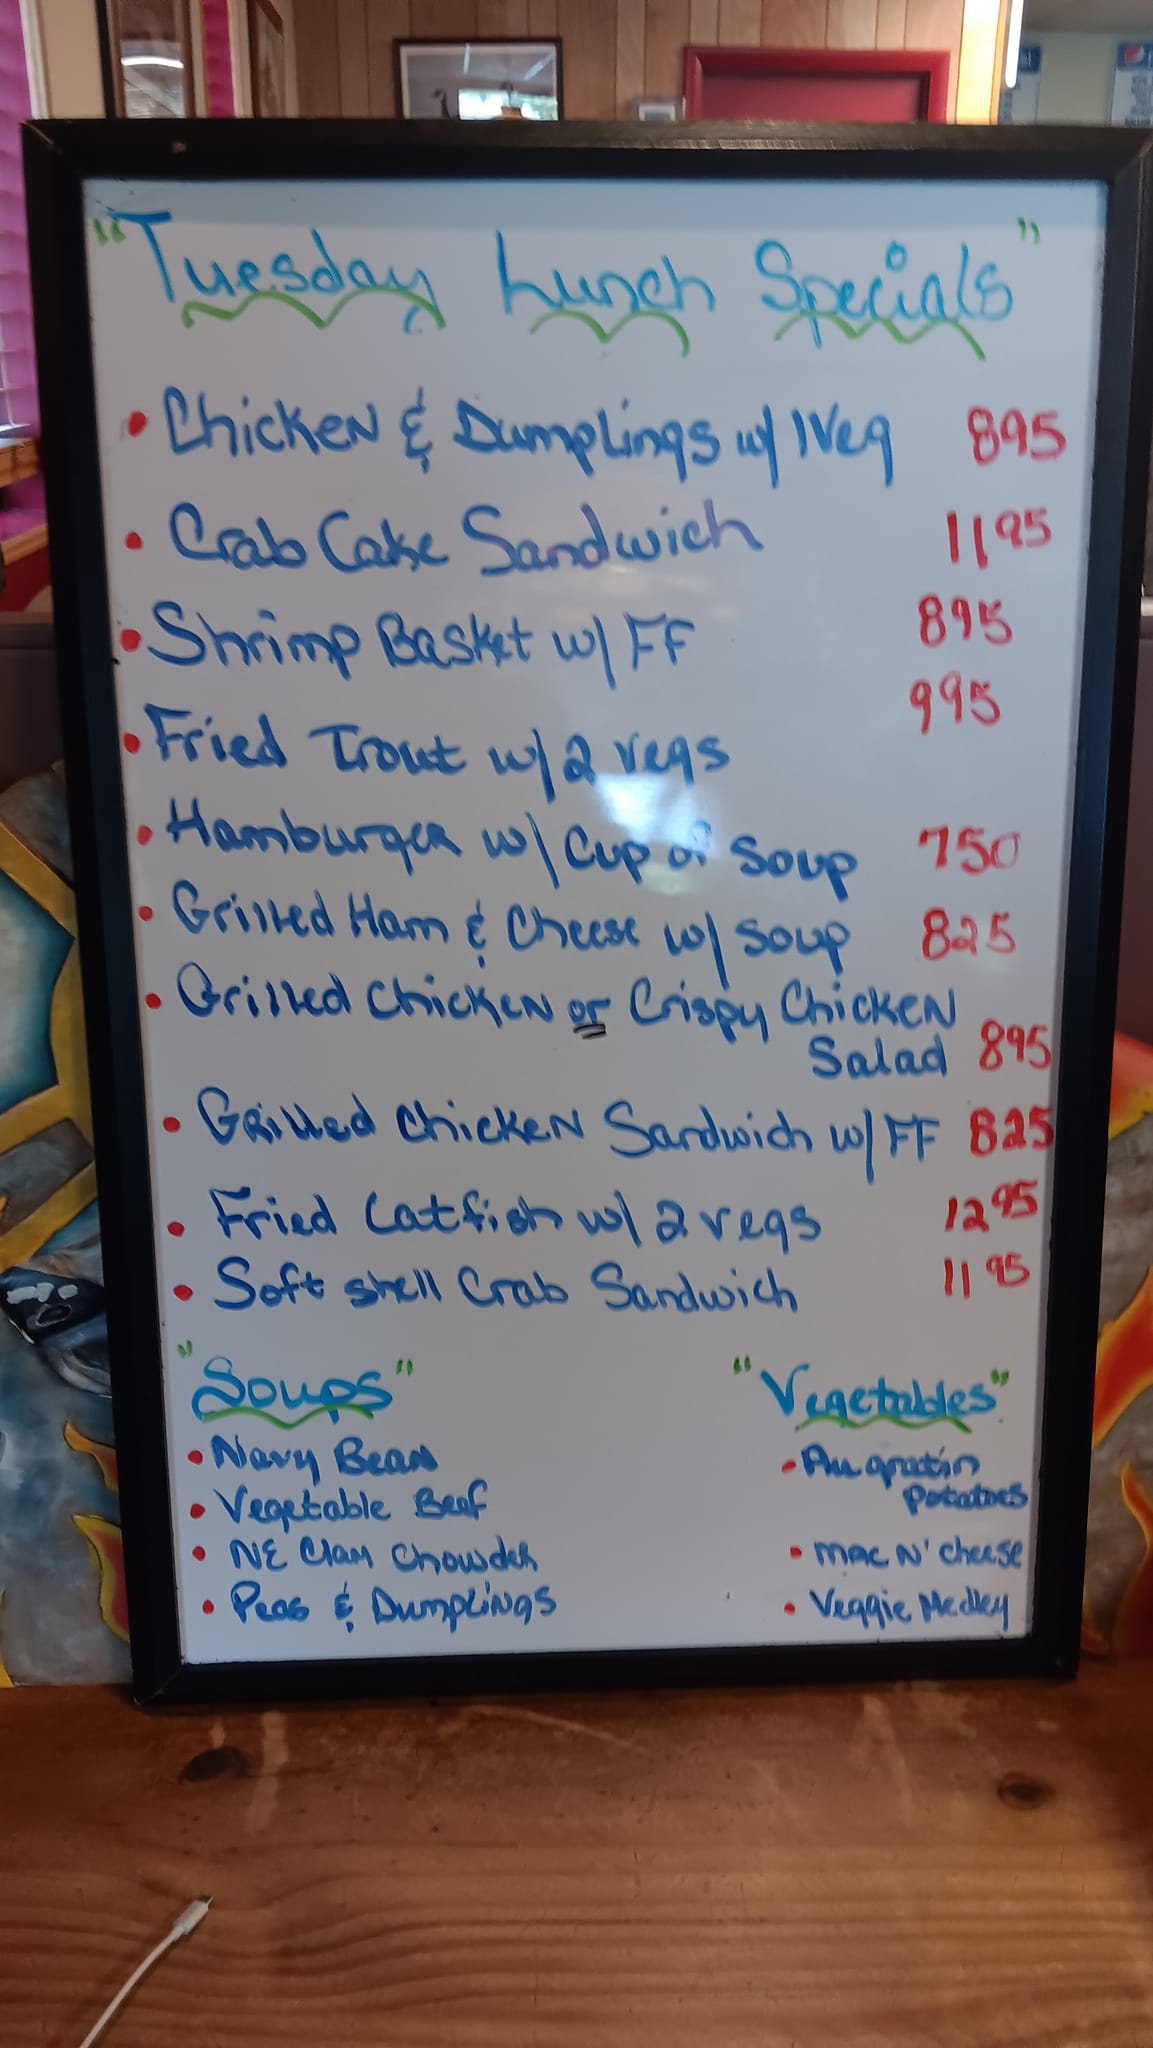 "Tuesday Lunch Specials"
• Chicken & Dumplings w/ 1 Veg 895
• Crab Cake Sandwich 1195
• Shrimp Basket w/ FF 895
• Fried Trout w/ 2 vegs 995
• Hamburger w/ Cup of Soup 750
• Grilled Ham & Cheese w/ Soup 825
• Grilled Chicken or Crispy Chicken
Salad 895
• Grilled Chicken Sandwich w/ FF 825
• Fried Catfish w/ 2 vegs 1295
• Soft shell Crab Sandwich 1195
"Soups"
• Navy Bean
• Vegetable Beef
• NE Clam Chowder
• Peas & Dumplings
"Vegetables"
• Au gratin
potatoes
• Mac N' Cheese
• Veggie Medley